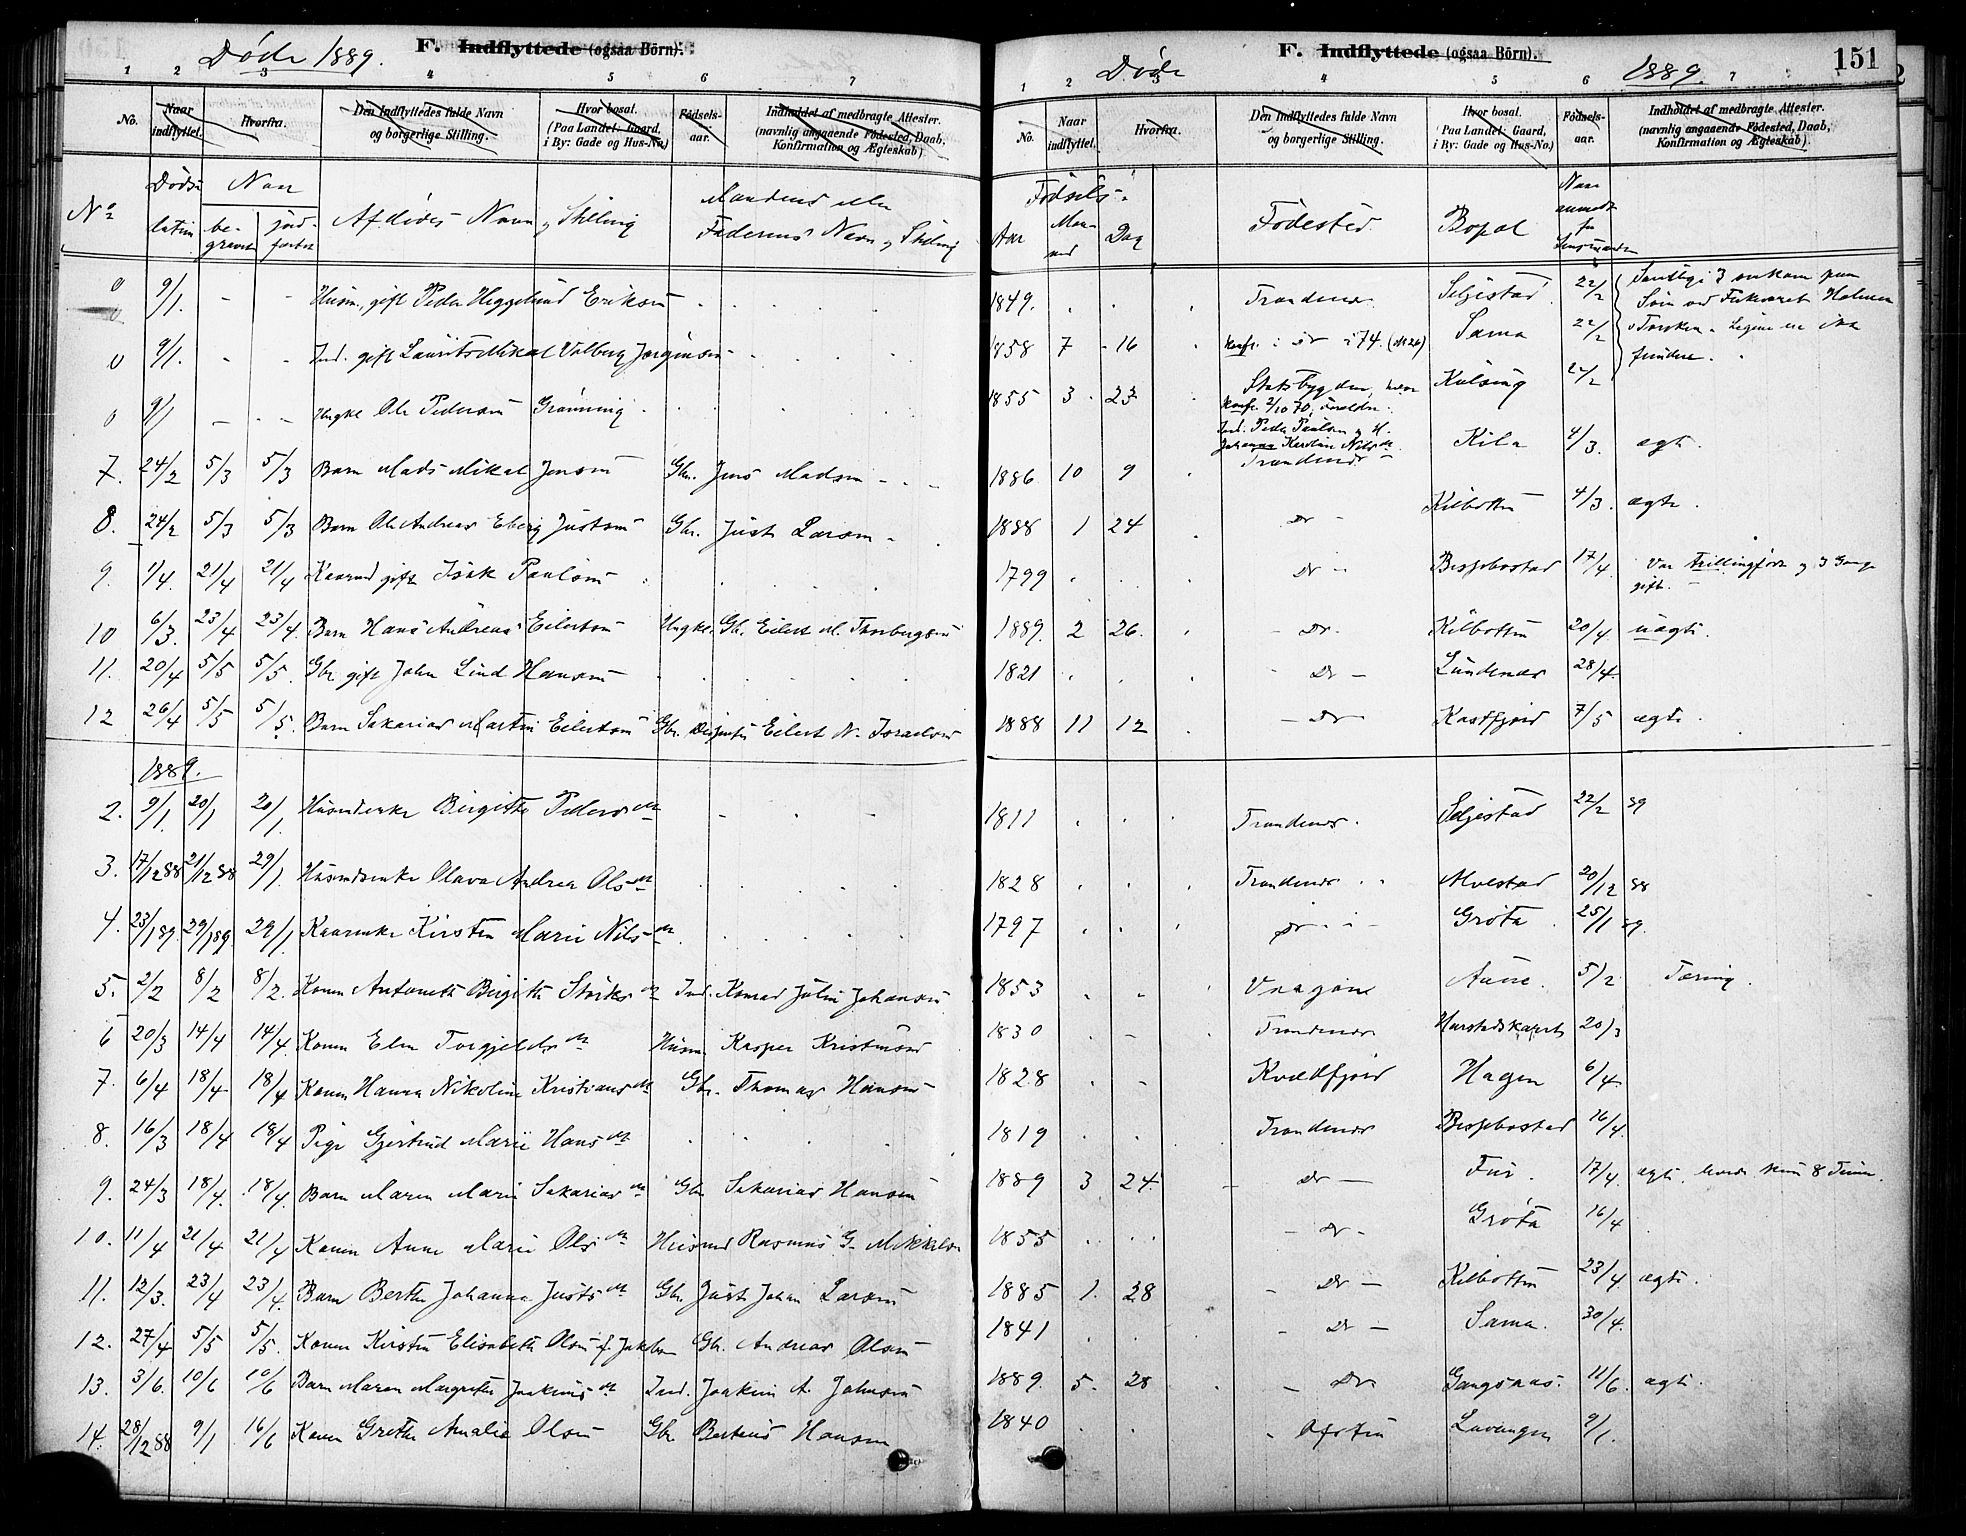 Døde 1889. F. Indflyttede (ogsaa Börn).
1 2 3 4 5 6 7
No. Naar indflyttet. Hvorfra. Den Indflyttedes fulde Navn og borgerlige Stilling. Hvor bosat. (Paa Landet: Gaard, i By: Gade og Hus-No.) Födsels-aar. Indholdet af medbragte Attester. (navnlig angaaende Födested, Daab, Konfirmation og Ægteskab).
No Døds- datum Naar be- gravet jord- fæstet Afdødes Navn og Stilling Mandens eller Faderens Navn og Stilling
0 9/1. - - Husm. gift Peder Heggelund Eriksen
0 9/1. - - Ind. gift Laurits Mikal Valberg Jørgensen
0 9/1 - - Ungkl Ole Pedersen Grønning
7. 24/2 5/3 5/3 Barn Mads Mikal Jensen Gbr. Jens Madsen
8. 24/2 5/3 5/3 Barn Ole Andreas Eberg Justsen Gbr. Just Larsen
9. 1/4. 21/4 21/4 Kaarmd gift Isak Paulsen
10 6/3. 23/4 23/4. Barn Hans Andreas Eilertsen Ungkl. Gb. Eilert M. Thorbergsen
11. 20/4 5/5 5/5. Gbr gift John Lind Hansen
12 26/4 5/5 5/5. Barn Sakarias Martin Eilertsen Gbr. Eilert N. Israelsen
1889.
2. 9/1. 20/1 20/1. Husmdenke Birgitte Pedersdt
3. 17/12 88 21/12 88 29/1. Husmdsenke Olava Andrea Olsdt
4. 23/1 89. 29/1 89 29/1. Kaarenke Kirsten Marie Nilsdt
5. 2/2 8/2 8/2. Konen Antonette Birgitte Störksdt Ind. Konrad Julin Johansen
6 20/3 14/4 14/4. Konen Elen Torgjeldsdt Husm. Kasper Kristensen
7. 6/4 18/4 18/4 Konen Hanna Nikoline Kristiansdt Gbr. Thomas Hansen
8. 16/3 18/4 18/4 Pige Gjertrud Marie Hansdt
9. 24/3 18/4. 18/4. Barn Maren Marie Sakariasdt Gbr Sakarias Hansen
10. 11/4 21/4 21/4 Konen Anne Marie Olsdt Husmd Rasmus G. Mikkelsen
11. 12/3. 23/4 23/4. Barn Berthe Johanna Justsdt Gbr Just Johan Larsen
12. 27/4 5/5 5/5. Konen Kirsten Elisabeth Olsen f. Jakobsen Gbr. Andreas Olsen
13. 3/6. 10/6 10/6 Barn Maren Margrethe Joakimsdt Ind. Joakim A. Johnsen
14. 28/12 88 9/1 16/6 Konen Grethe Amalie Olsen Gbr Berteus Hansen
Døde F. Indflyttede (ogsaa Börn). 1889. 151
1 2 3 4 5 6 7
No. Naar indflyttet. Hvorfra. Den Indflyttedes fulde Navn og borgerlige Stilling. Hvor bosat. (Paa Landet: Gaard, i By: Gade og Hus-No.) Födsels-aar. Indholdet af medbragte Attester. (navnlig angaaende Födested, Daab, Konfirmation og Ægteskab).
Fødsels- Aar Maa- ned Dag Fødested Bopæl Naar anmeldt for Lensmanden
1849. Trondenes. Seljestad. 22/2 Samtlige 3 omkom paa
1858 7 16 Konfr. i 74. (No 26) Sama 22/2
1855 3 23 Stadsbygden, Kulseng 22/2
konfr. 2/10 70. Forældre:
Ind. Peder Paulsen og H.
Johanna Karoline Nilsdt.
1886 10 9 Trondenes Kila 4/3. ægte.
1888 1 24 Do Kilbotten 4/3. ægte.
1799 Do Bessebostad 17/4. Var trillingfødt og 3 Gange
gift.
1889. 2 26. Do. Kilbotten 20/4 uægte.
1821 Do Lundenes 28/4.
1888 11 12 Do Kasfjord 7/5 ægte.
1811 Trondenes. Seljestad 22/2 89
1828 Trondenes Alvestad 20/12 88
1797 Do Grøta 25/1 89.
1853 Vaagan Aune. 5/2 Tæring.
1830 Trondenes 20/3
1828 Kvædfjord Hagen 6/4.
1819 Trondenes Bessebostad 16/4.
1889 3 24. Do Fur. 17/4. ægte.
1855 Do Grøta 16/4
1885 1. 28 Do Kilbotten 23/4. ægte.
1841 Do Sama. 30/4.
1889. 5. 28 Do Gangsaas. 11/6. ægte.
1840 Ofoten Lavangen 9/1.